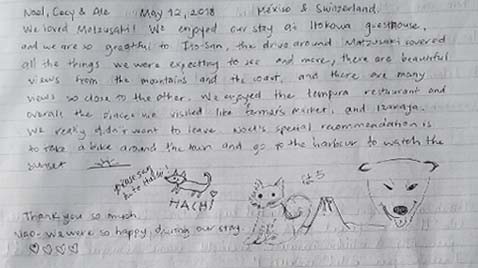 Noel, Cecy & Ale May 12, 2018 México & Switzerland.
We loved Matzusaki! We enjoyed our stay at Itokawa guesthouse,
and we are so greatful to Ito-San, the drive around Matzusaki covered
all the things we were expecting to see and more, there are beautiful
views from the mountains and the coast, and there are many
views so close to the other. We enjoyed the tempura restaurant and
overall the places we visited like farmer's market, and Izakaya.
We really didn't want to leave. Noel's special recommendation is
to take a bike around the town and go to the harbour to watch the
sunset
please say
hi to Hachi!
HACHI
Thank you so much
Nao. We were so happy during our stay.